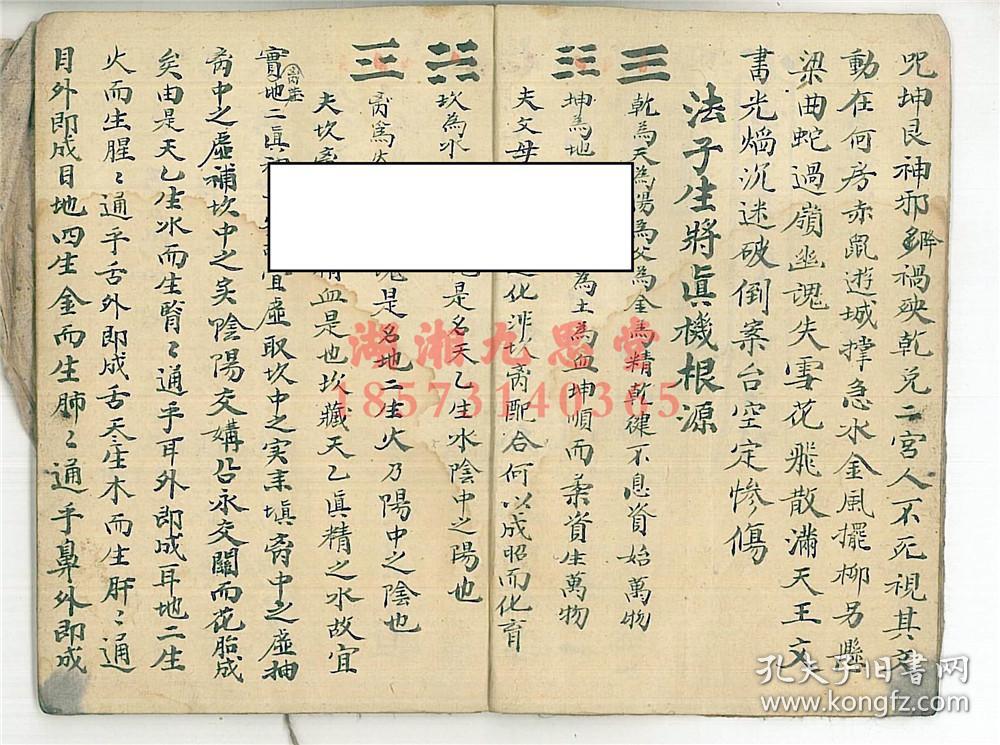 咒坤艮神邪降禍殃乾兑二宮人不死視其交
動在何房赤鼠遊城撑急水金風擺柳另懸
梁曲蛇過嶺幽魂失雪花飛散滿天王文
書光熖沉迷破倒案台空定慘傷
法子生將眞機根源
☰ 乾為天為陽為父為金為精乾健不息資始萬物
☷ 坤為地 為土為血坤順而柔資生萬物
夫父母 化 離配合何以成昭而化育
☵ 坎為水 是名天乙生水陰中之陽也
☲ 离為火 是名地二生火乃陽中之陰也
夫坎离 血是也坎藏天乙眞精之水故宜
實离藏地二眞 宜虚取坎中之実耒塡离中之虚抽
离中之虚補坎中之実陰陽交媾占汞交關而花胎成
矣由是天乙生水而生腎〻通乎耳外即成耳地二生
火而生腥〻通乎舌外即成舌天三生木而生肝〻通
目外即成目地四生金而生肺〻通乎鼻外即成
湖湘九思堂
18573140365
孔夫子旧書网
www.kongfz.com